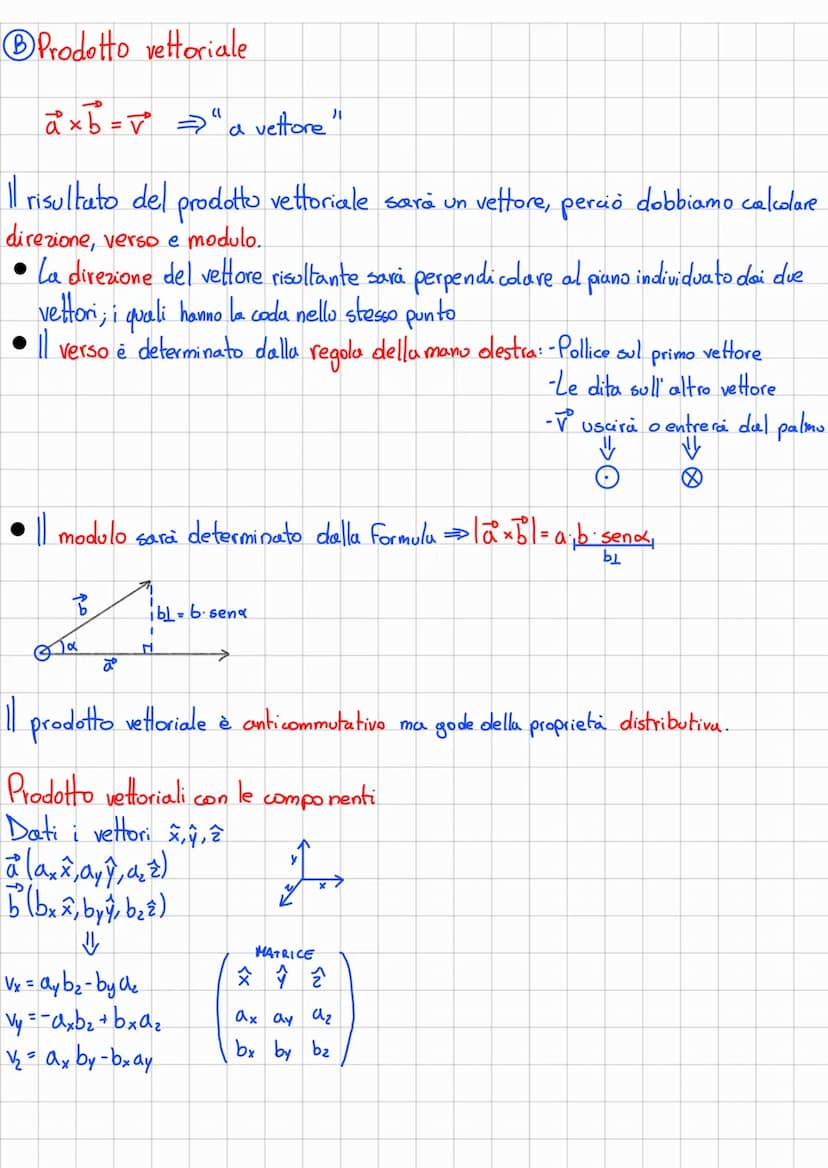 Ⓑ Prodotto vettoriale
a⃗ × b⃗ = v⃗ ⇒ "a vettore"
Il risultato del prodotto vettoriale sarà un vettore, perciò dobbiamo calcolare
direzione, verso e modulo.
● La direzione del vettore risultante sarà perpendicolare al piano individuato dai due
vettori; i quali hanno la coda nello stesso punto
● Il verso è determinato dalla regola della mano destra: - Pollice sul primo vettore
- Le dita sull'altro vettore
- v⃗ uscirà o entrerà dal palmo
⇓ ⇓
⊙ ⊗
● Il modulo sarà determinato dalla formula ⇒ |a⃗ × b⃗| = a · b · senα
b⊥
b⃗
b⊥ = b · senα
α
a⃗
Il prodotto vettoriale è anticommutativo ma gode della proprietà distributiva.
Prodotto vettoriali con le componenti
Dati i vettori x̂, ŷ, ẑ
a⃗ (aₓx̂, a_yŷ, a_zẑ)
b⃗ (bₓx̂, b_yŷ, b_zẑ)
y
x
z
⇓
vₓ = a_y b_z - b_y a_z
v_y = -aₓ b_z + bₓ a_z
v_z = aₓ b_y - bₓ a_y
MATRICE
x̂ ŷ ẑ
aₓ a_y a_z
bₓ b_y b_z